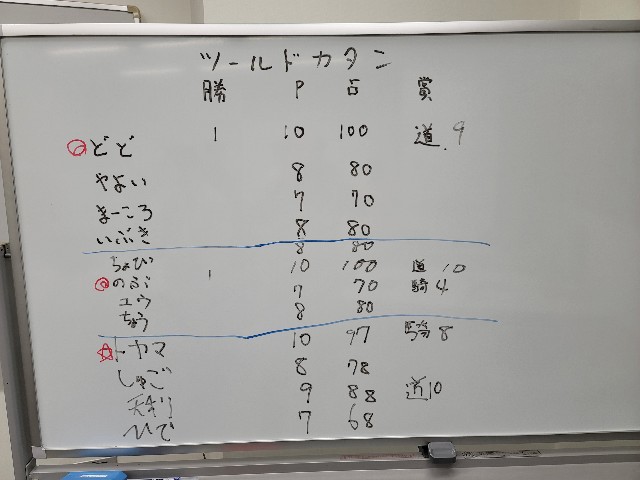 ツールドカタン
勝 P 占 賞
どど 1 10 100 道 9
やよい 8 80
まーころ 7 70
いぶき 8 80
ちょび 8 80
のぶ 1 10 100 道 10
ユウ 7 70 騎 4
ちょう 8 80
トヤマ 10 97 騎 8
しゅご 8 78
9 88 道10
ひで 7 68